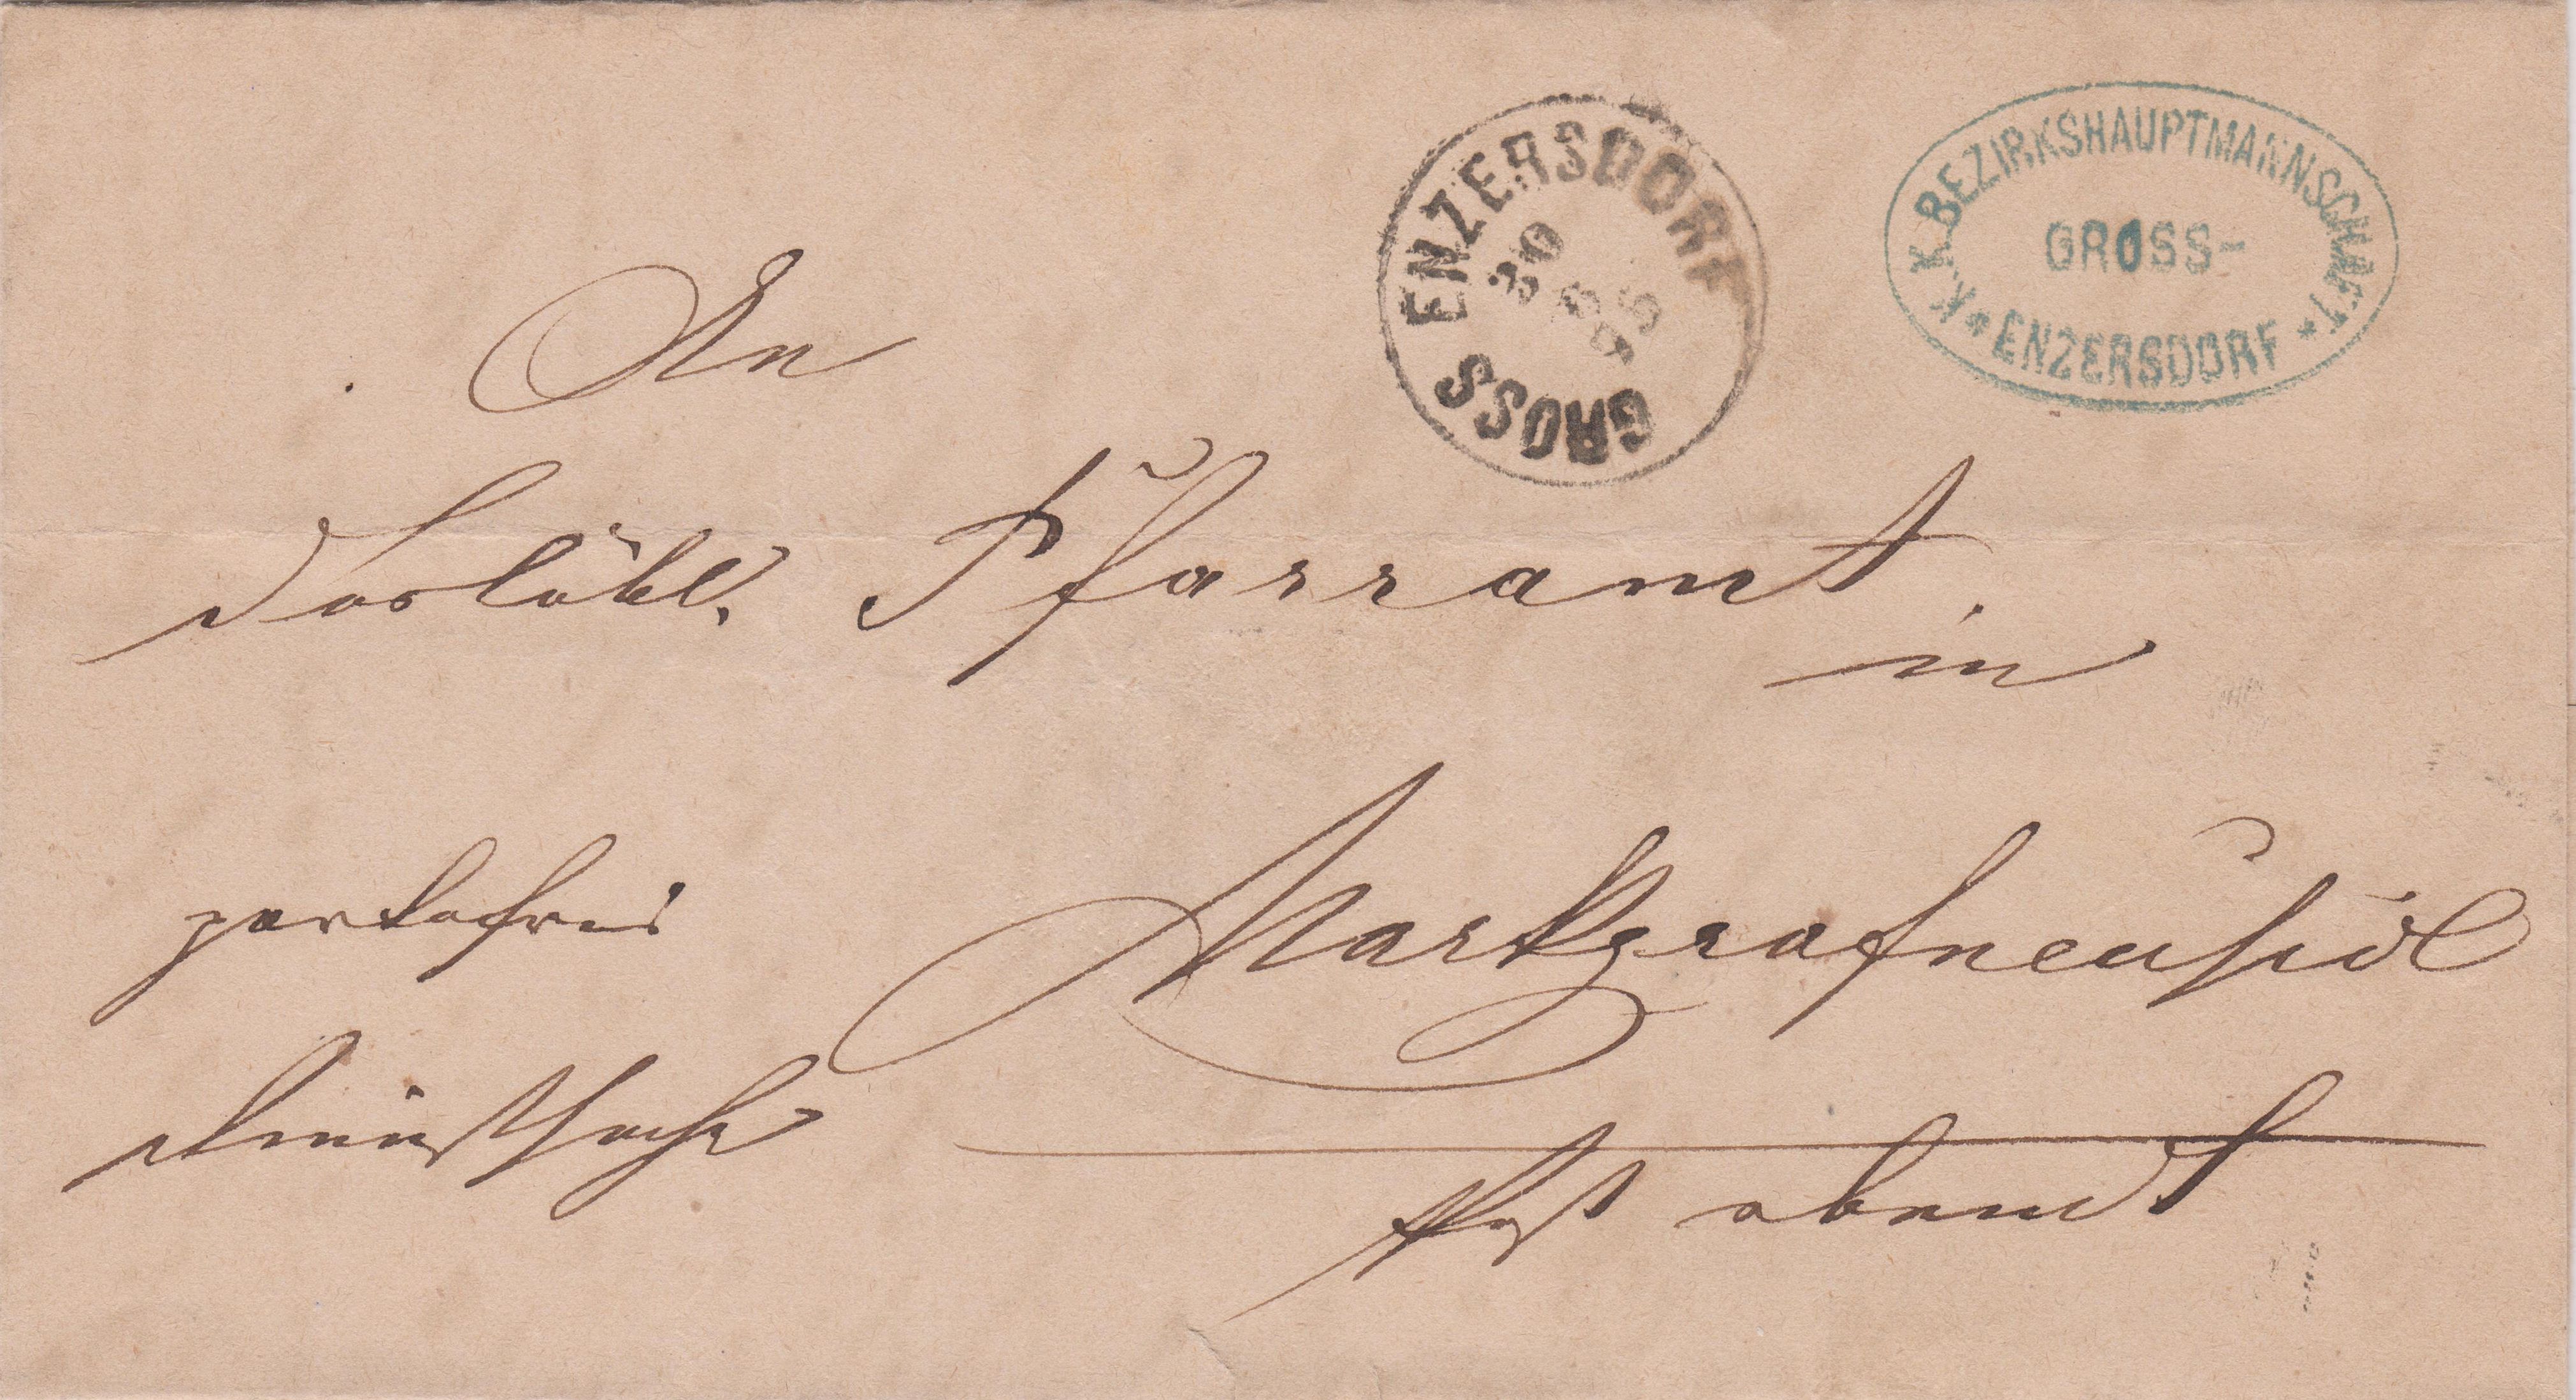 GROSS ENZERSDORF
30
K.K. BEZIRKSHAUPTMANNSCHAFT
GROSS-
* ENZERSDORF *
An
das löbl. Pfarramt
in
Markgrafneusidl
portofreie
Dienstsache
Post